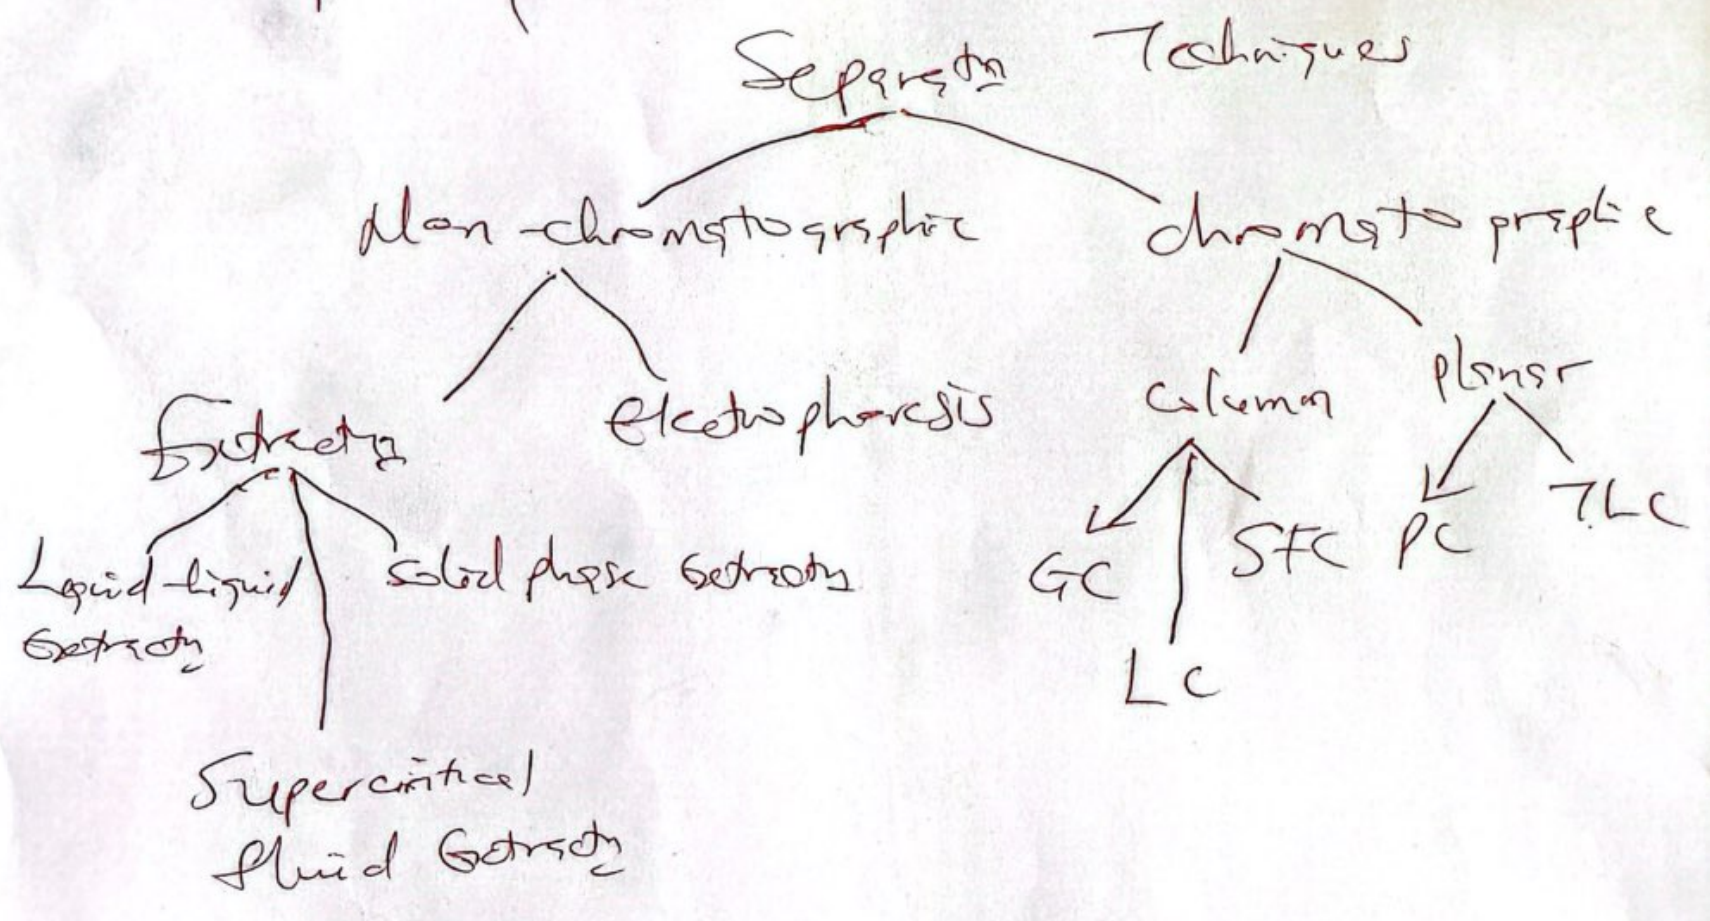 Separation Techniques
Non-chromatographic chromatographic
Extraction Electrophoresis Column planar
Liquid-liquid Extraction
Solid phase Extraction
Supercritical
fluid Extraction
GC
LC
SFC
PC
TLC